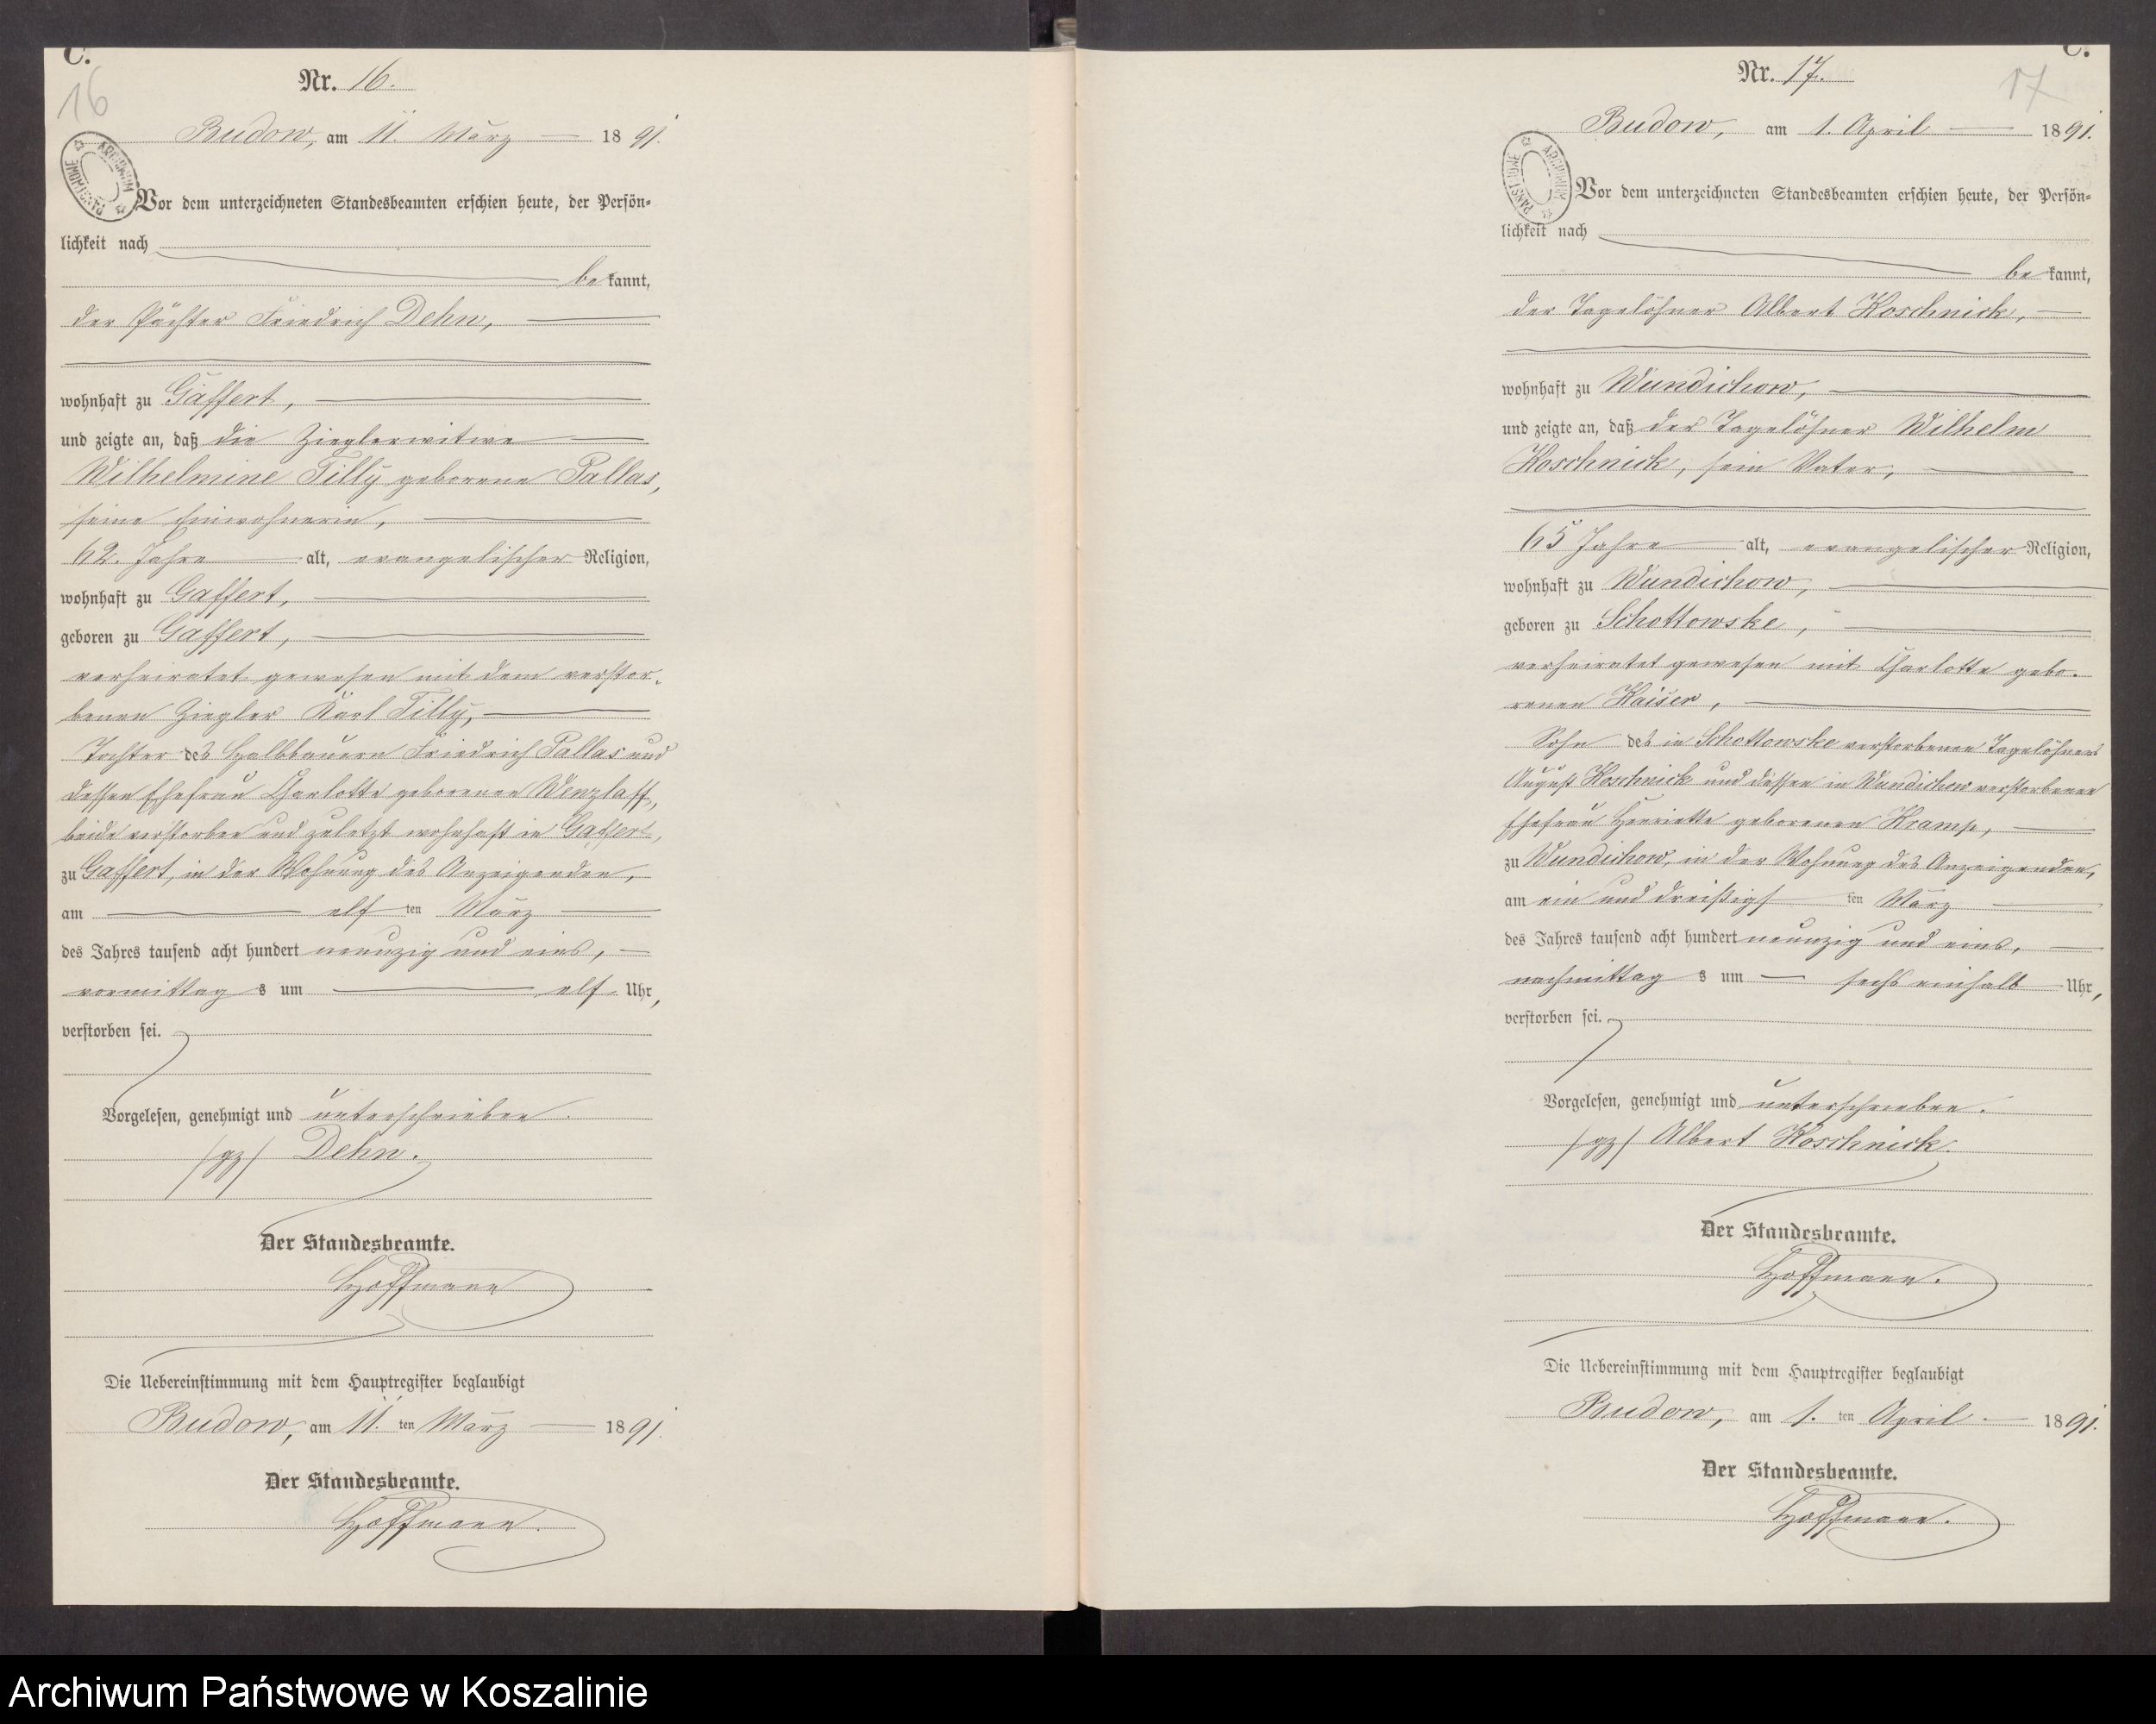 C.
16
Nr. 16.
Budow, am 11. März 1891.
ARCHIWUM PAŃSTWOWE
Vor dem unterzeichneten Standesbeamten erschien heute, der Persön-
lichkeit nach
bekannt,
der Pächter Friedrich Dehn,
wohnhaft zu Gaffert,
und zeigte an, daß die Zieglerwitwe
Wilhelmine Tilly geborene Pallas,
seine Einwohnerin,
62 Jahre alt, evangelischer Religion,
wohnhaft zu Gaffert,
geboren zu Gaffert,
verheiratet gewesen mit dem verstor-
benen Ziegler Karl Tilly,
Tochter des Halbbauern Friedrich Pallas und
dessen Ehefrau Charlotte geborenen Wenzlaff,
beide verstorben und zuletzt wohnhaft in Gaffert,
zu Gaffert, in der Wohnung des Anzeigenden,
am elf ten März
des Jahres tausend acht hundert neunzig und eins,
vormittags um elf Uhr,
verstorben sei.
Vorgelesen, genehmigt und unterschrieben.
/gz/ Dehn.
Der Standesbeamte.
Hoffmann
Die Uebereinstimmung mit dem Hauptregister beglaubigt
Budow, am 11. ten März 1891.
Der Standesbeamte.
Hoffmann.
C.
17
Nr. 17.
Budow, am 1. April 1891.
ARCHIWUM PAŃSTWOWE
Vor dem unterzeichneten Standesbeamten erschien heute, der Persön-
lichkeit nach
bekannt,
der Tagelöhner Albert Koschnick,
wohnhaft zu Wundichow,
und zeigte an, daß der Tagelöhner Wilhelm
Koschnick, sein Vater,
65 Jahre alt, evangelischer Religion,
wohnhaft zu Wundichow,
geboren zu Schottowske,
verheiratet gewesen mit Charlotte gebo-
renen Kaiser,
Sohn des in Schottowske verstorbenen Tagelöhners
August Koschnick und dessen in Wundichow verstorbenen
Ehefrau Henriette geborenen Kramp,
zu Wundichow, in der Wohnung des Anzeigenden,
am ein und dreißigs ten März
des Jahres tausend acht hundert neunzig und eins,
nachmittags um sechs einhalb Uhr,
verstorben sei.
Vorgelesen, genehmigt und unterschrieben.
/gz/ Albert Koschnick.
Der Standesbeamte.
Hoffmann.
Die Uebereinstimmung mit dem Hauptregister beglaubigt
Budow, am 1. ten April 1891.
Der Standesbeamte.
Hoffmann.
Archiwum Państwowe w Koszalinie